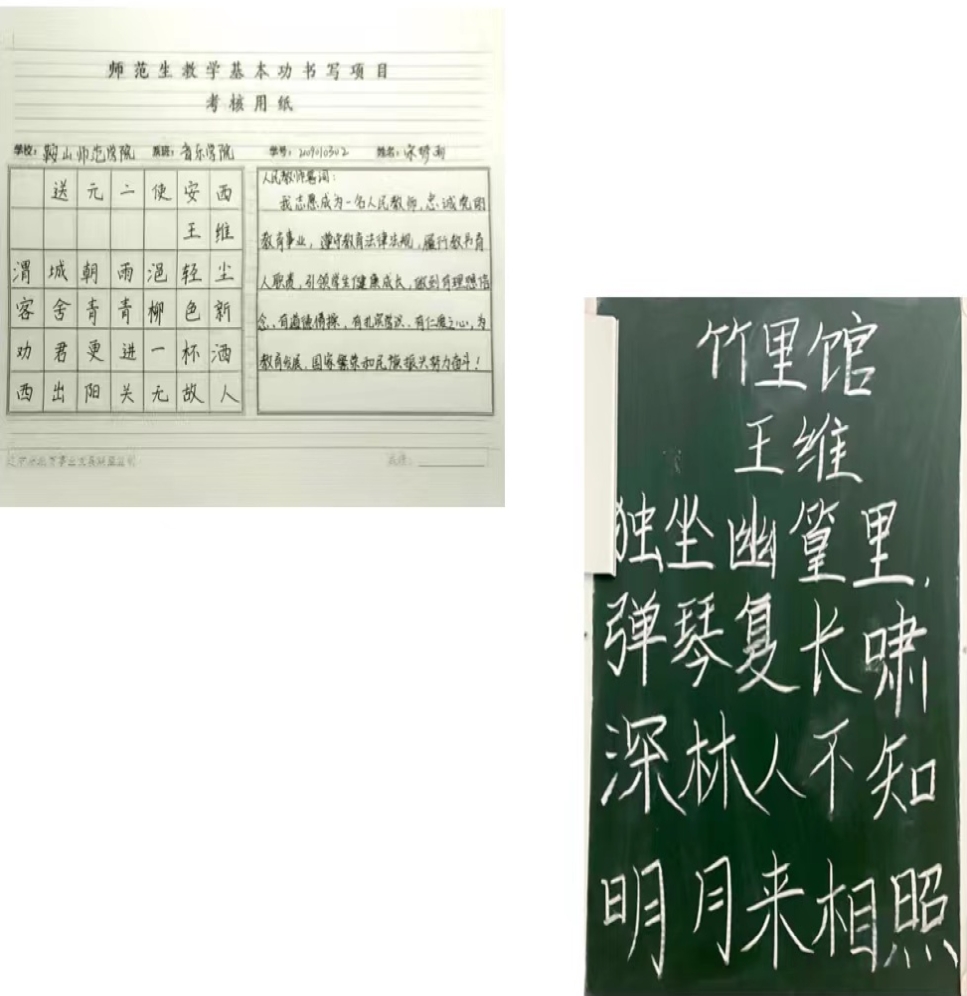 师范生教学基本功书写项目
考核用纸
学校：鞍山师范学院 系班：音乐学院 学号： 姓名：
送元二使安西
王维
渭城朝雨浥轻尘
客舍青青柳色新
劝君更进一杯酒
西出阳关无故人
人民教师誓词：
我志愿成为一名人民教师，忠诚党的
教育事业，遵守教育法律法规，履行教书育
人职责，引领学生健康成长，做到有理想信
念、有道德情操、有扎实学识、有仁爱之心，为
教育发展、国家繁荣和民族振兴努力奋斗！
竹里馆
王维
独坐幽篁里，
弹琴复长啸
深林人不知
明月来相照